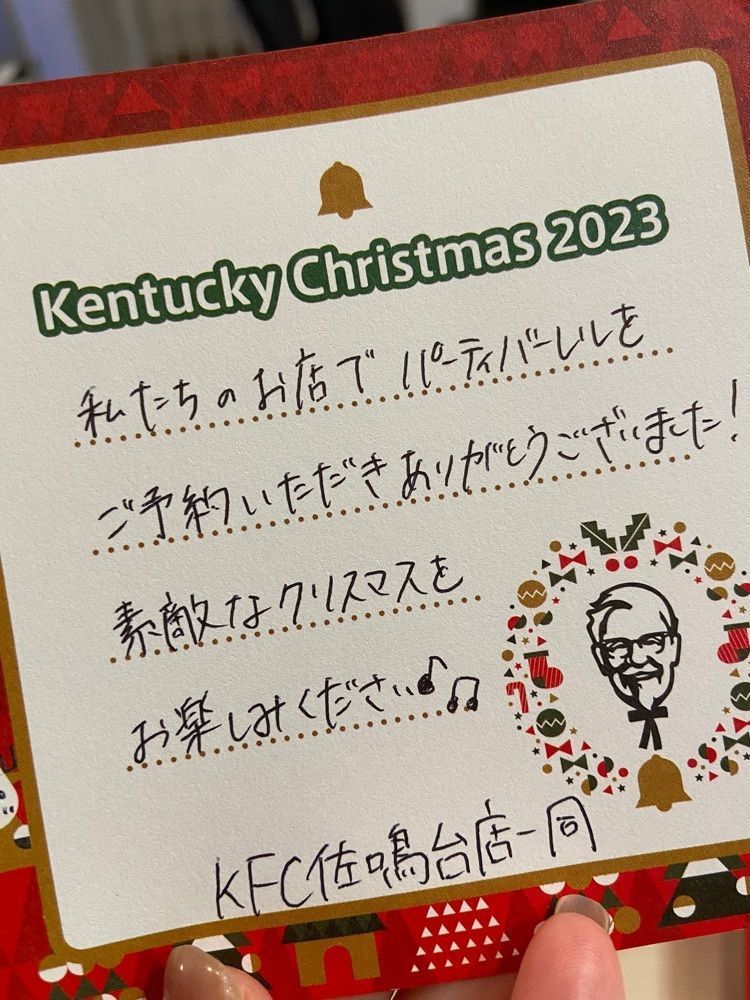 Kentucky Christmas 2023
私たちのお店でパーティバーレルを
ご予約いただきありがとうございました!
素敵なクリスマスを
お楽しみください♪♫
KFC佐鳴台店一同